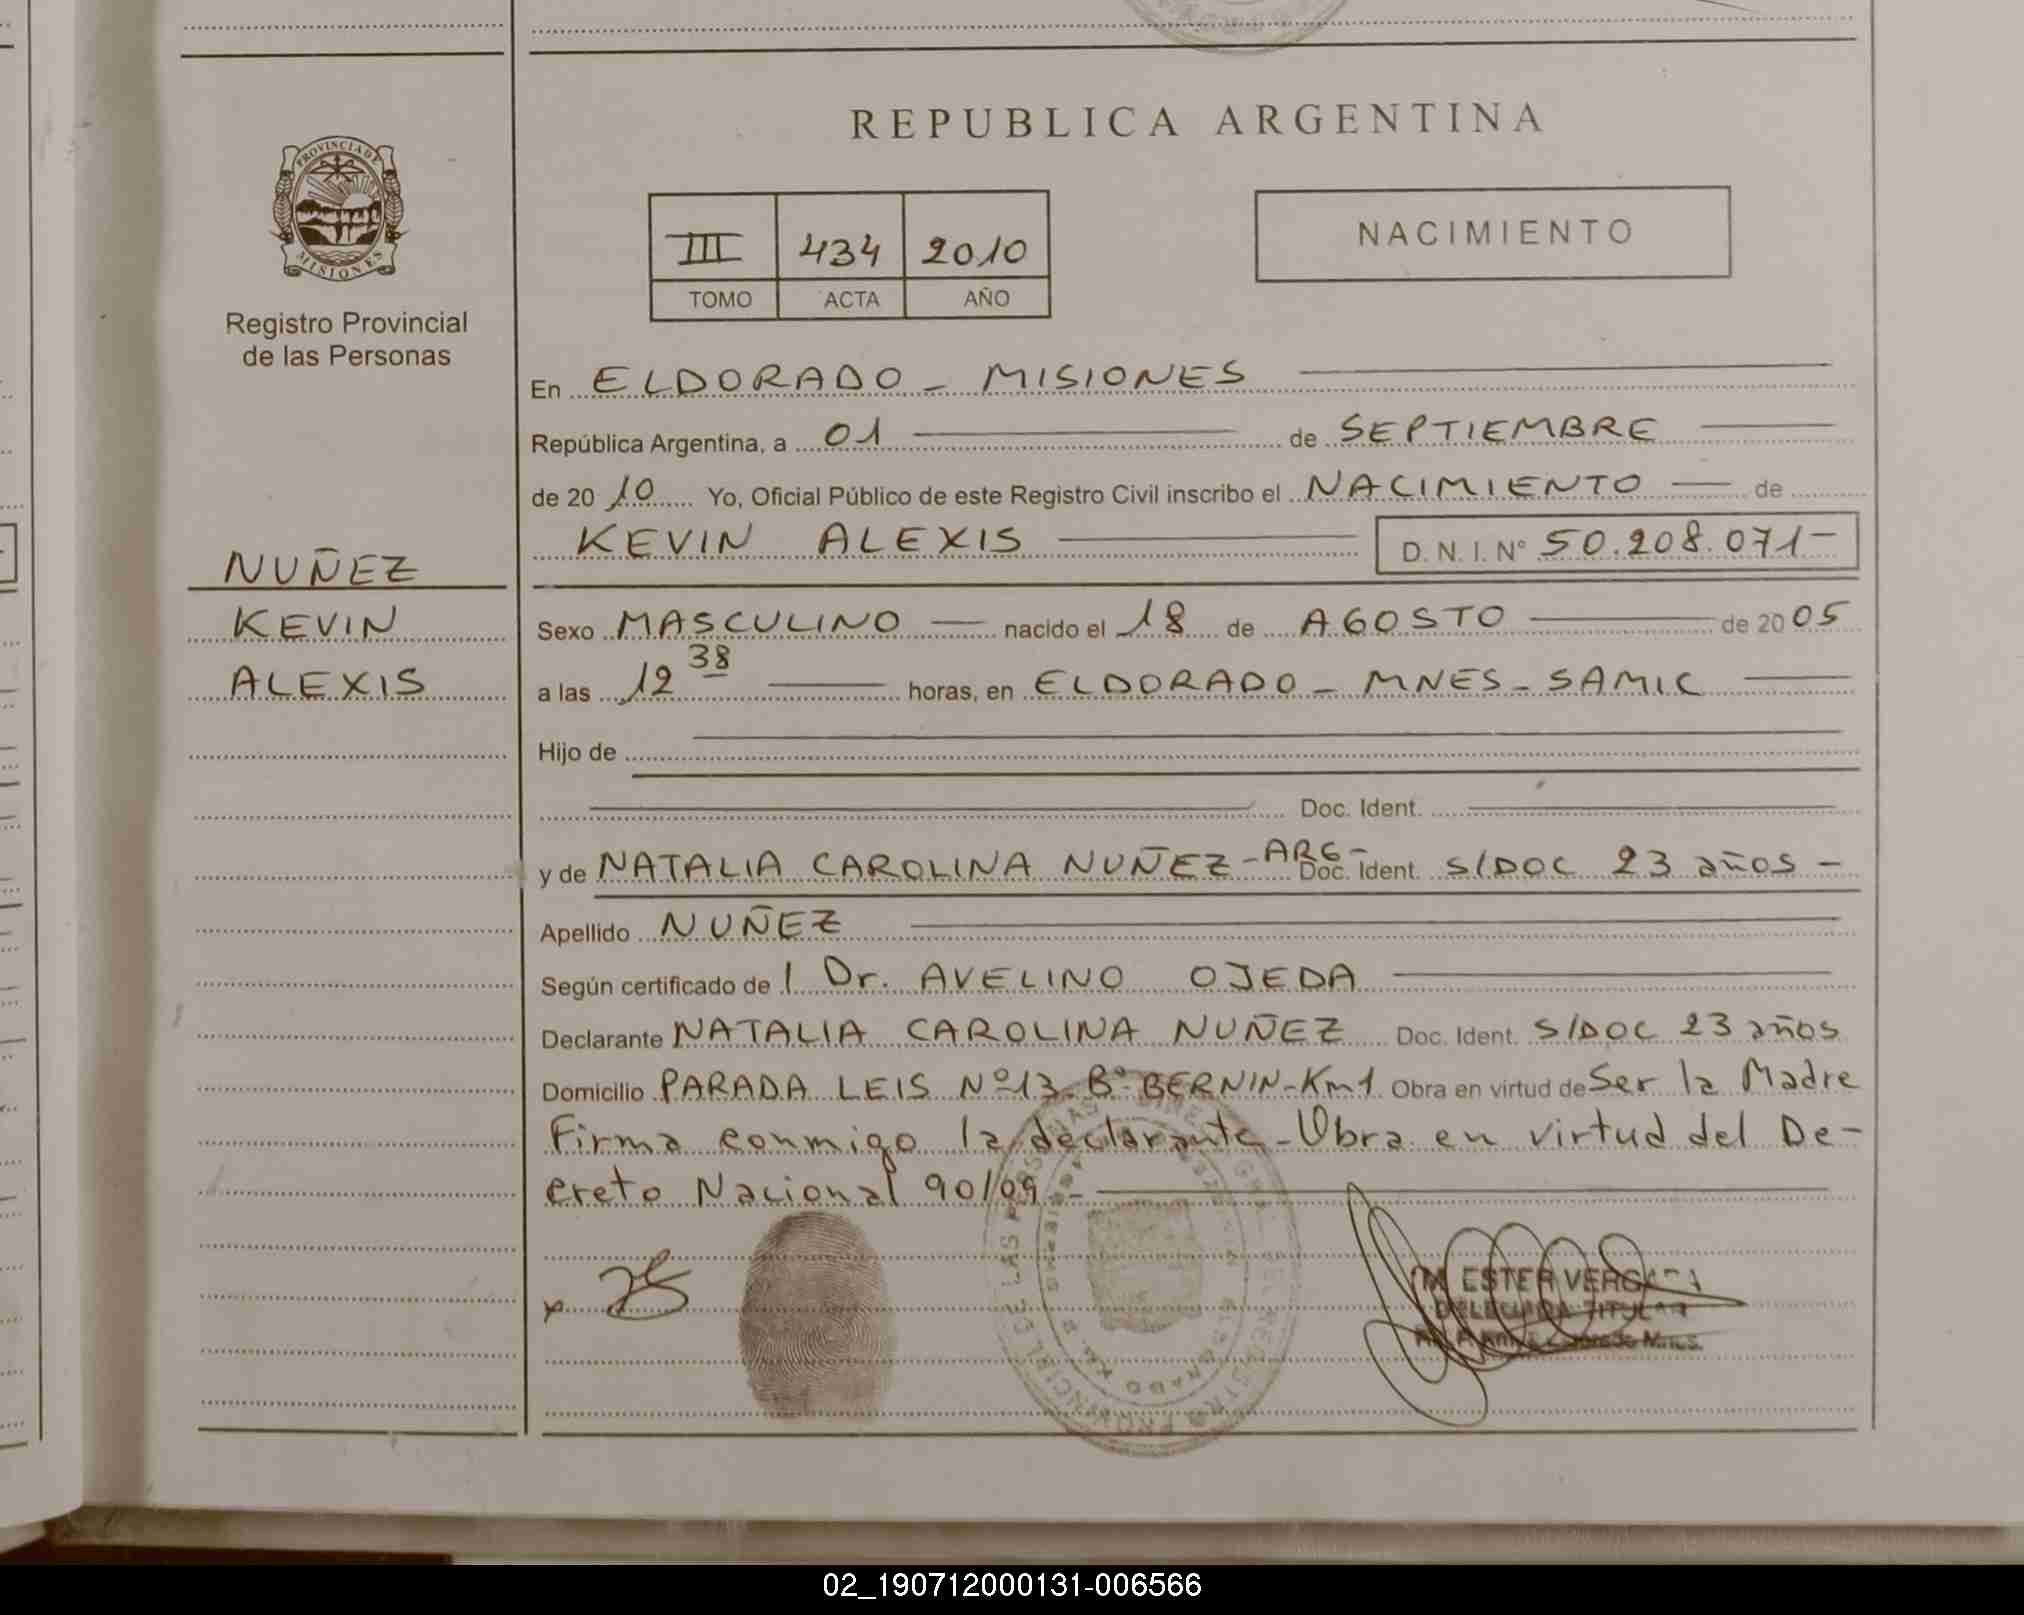 REPUBLICA ARGENTINA
PROVINCIA DE
MISIONES
Registro Provincial
de las Personas
III 434 2010
TOMO ACTA AÑO
NACIMIENTO
En ELDORADO - MISIONES
República Argentina, a 01 de SEPTIEMBRE
de 2010 Yo, Oficial Público de este Registro Civil inscribo el NACIMIENTO de
KEVIN ALEXIS D. N. I. N° 50.208.071-
NUÑEZ
KEVIN
ALEXIS
Sexo MASCULINO nacido el 18 de AGOSTO de 2005
a las 12 38 horas, en ELDORADO - MNES - SAMIC
Hijo de
Doc. Ident.
y de NATALIA CAROLINA NUÑEZ - ARG - Doc. Ident. S/DOC 23 años -
Apellido NUÑEZ
Según certificado de l Dr. AVELINO OJEDA
Declarante NATALIA CAROLINA NUÑEZ Doc. Ident. S/DOC 23 años
Domicilio PARADA LEIS Nº13 - Bº BERNIN - Km1 Obra en virtud de Ser la Madre
Firma conmigo la declarante - Obra en virtud del De-
creto Nacional 90/09 -
x
M. ESTER VERGARA
DELEGADA TITULAR
02_190712000131-006566